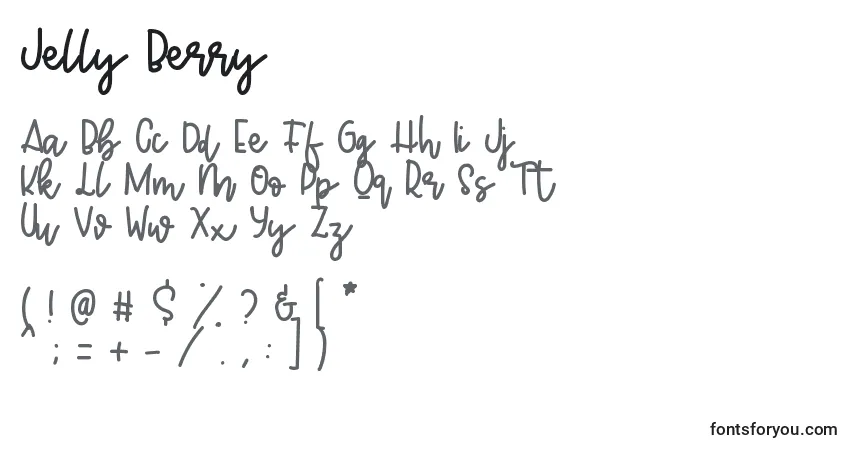 Jelly Berry
Aa Bb Cc Dd Ee Ff Gg Hh Ii Jj
Kk Ll Mm Nn Oo Pp Qq Rr Ss Tt
Uu Vv Ww Xx Yy Zz
( ! @ # $ % ? & { *
^ ; = + - / . , : ] )
fontsforyou.com